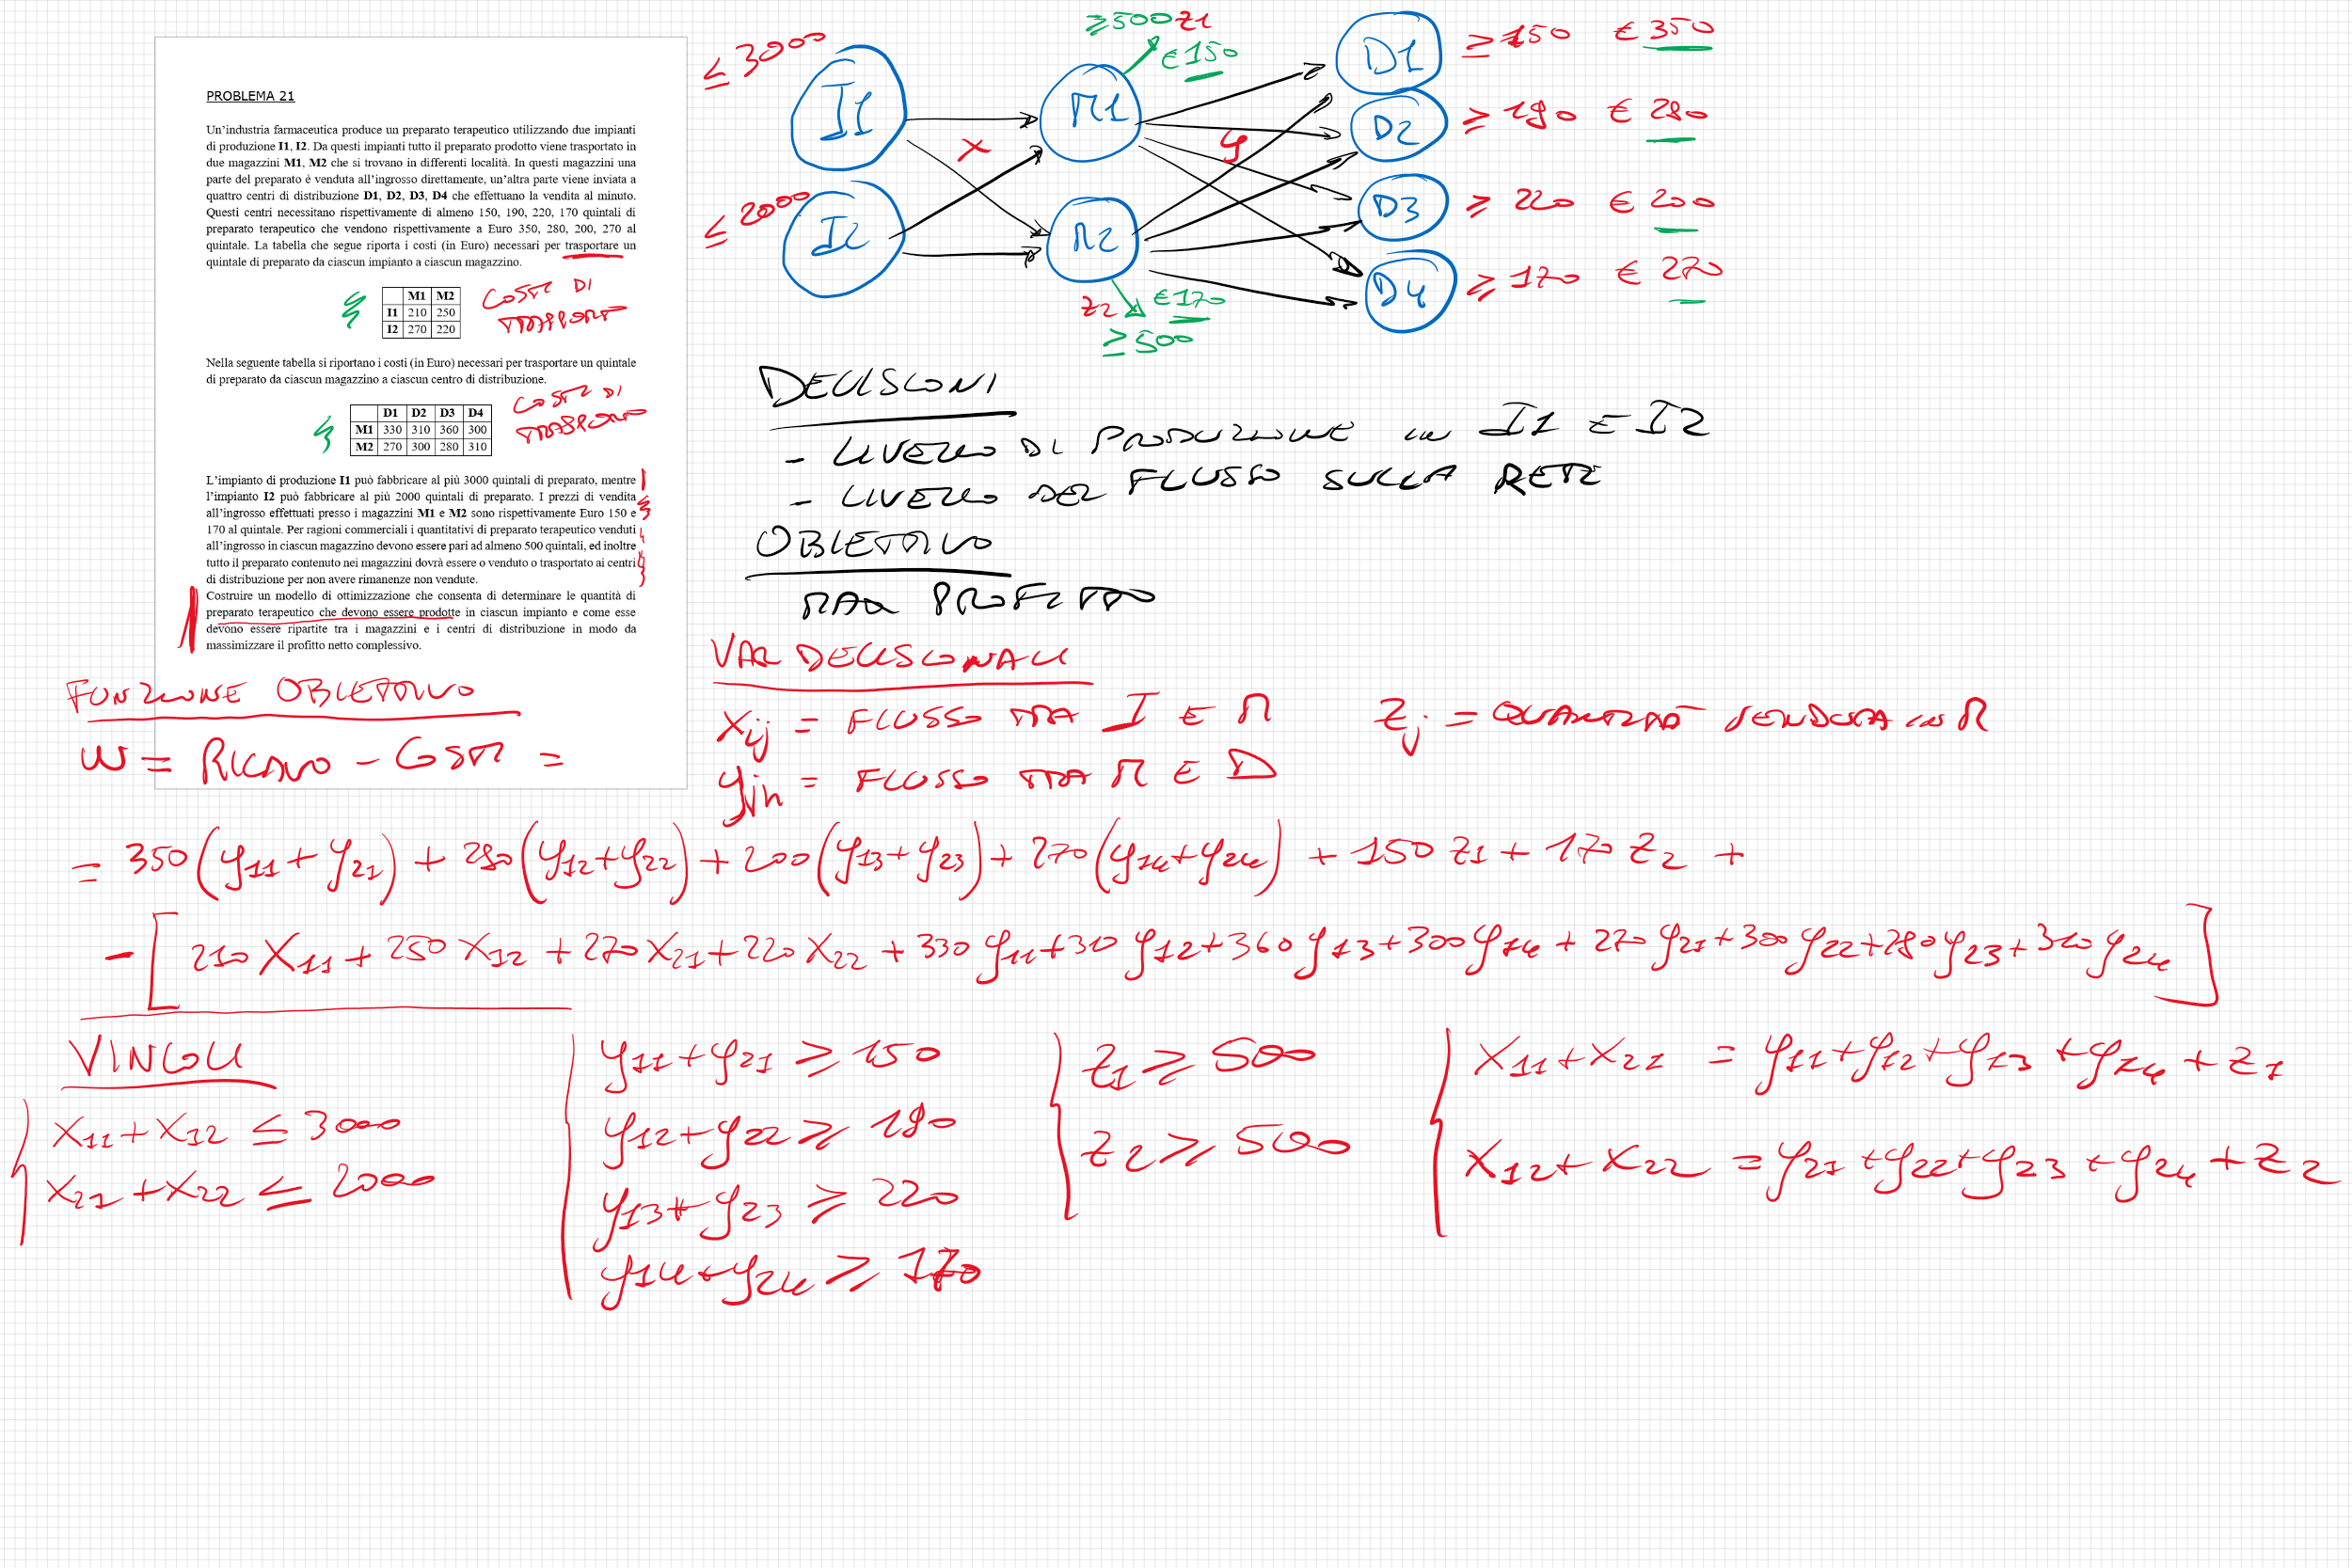 PROBLEMA 21
Un'industria farmaceutica produce un preparato terapeutico utilizzando due impianti
di produzione I1, I2. Da questi impianti tutto il preparato prodotto viene trasportato in
due magazzini M1, M2 che si trovano in differenti località. In questi magazzini una
parte del preparato è venduta all'ingrosso direttamente, un'altra parte viene inviata a
quattro centri di distribuzione D1, D2, D3, D4 che effettuano la vendita al minuto.
Questi centri necessitano rispettivamente di almeno 150, 190, 220, 170 quintali di
preparato terapeutico che vendono rispettivamente a Euro 350, 280, 200, 270 al
quintale. La tabella che segue riporta i costi (in Euro) necessari per trasportare un
quintale di preparato da ciascun impianto a ciascun magazzino.
M1 M2
I1 210 250
I2 270 220
COSTI DI
TRASPORTO
Nella seguente tabella si riportano i costi (in Euro) necessari per trasportare un quintale
di preparato da ciascun magazzino a ciascun centro di distribuzione.
D1 D2 D3 D4
M1 330 310 360 300
M2 270 300 280 310
COSTI DI
TRASPORTO
L'impianto di produzione I1 può fabbricare al più 3000 quintali di preparato, mentre
l'impianto I2 può fabbricare al più 2000 quintali di preparato. I prezzi di vendita
all'ingrosso effettuati presso i magazzini M1 e M2 sono rispettivamente Euro 150 e
170 al quintale. Per ragioni commerciali i quantitativi di preparato terapeutico venduti
all'ingrosso in ciascun magazzino devono essere pari ad almeno 500 quintali, ed inoltre
tutto il preparato contenuto nei magazzini dovrà essere o venduto o trasportato ai centri
di distribuzione per non avere rimanenze non vendute.
Costruire un modello di ottimizzazione che consenta di determinare le quantità di
preparato terapeutico che devono essere prodotte in ciascun impianto e come esse
devono essere ripartite tra i magazzini e i centri di distribuzione in modo da
massimizzare il profitto netto complessivo.
≤ 3000
I1
≤ 2000
I2
x
≥500 z1
€150
M1
M2
z2 €170
≥500
y
D1 ≥ 150 € 350
D2 ≥ 190 € 280
D3 ≥ 220 € 200
D4 ≥ 170 € 270
DECISIONI
- LIVELLO DI PRODUZIONE in I1 E I2
- LIVELLO DEL FLUSSO SULLA RETE
OBIETTIVO
MAX PROFITTO
VAR DECISIONALI
xij = FLUSSO TRA I E M
zj = QUANTITÀ VENDUTA in M
yjh = FLUSSO TRA M E D
FUNZIONE OBIETTIVO
W = RICAVO - COSTI =
= 350(y11+y21) + 280(y12+y22) + 200(y13+y23) + 270(y14+y24) + 150 z1 + 170 z2 +
- [210 x11 + 250 x12 + 270 x21 + 220 x22 + 330 y11 + 310 y12 + 360 y13 + 300 y14 + 270 y21 + 300 y22 + 280 y23 + 310 y24]
VINCOLI
x11 + x12 ≤ 3000
x21 + x22 ≤ 2000
y11 + y21 ≥ 150
y12 + y22 ≥ 190
y13 + y23 ≥ 220
y14 + y24 ≥ 170
z1 ≥ 500
z2 ≥ 500
x11 + x21 = y11 + y12 + y13 + y14 + z1
x12 + x22 = y21 + y22 + y23 + y24 + z2